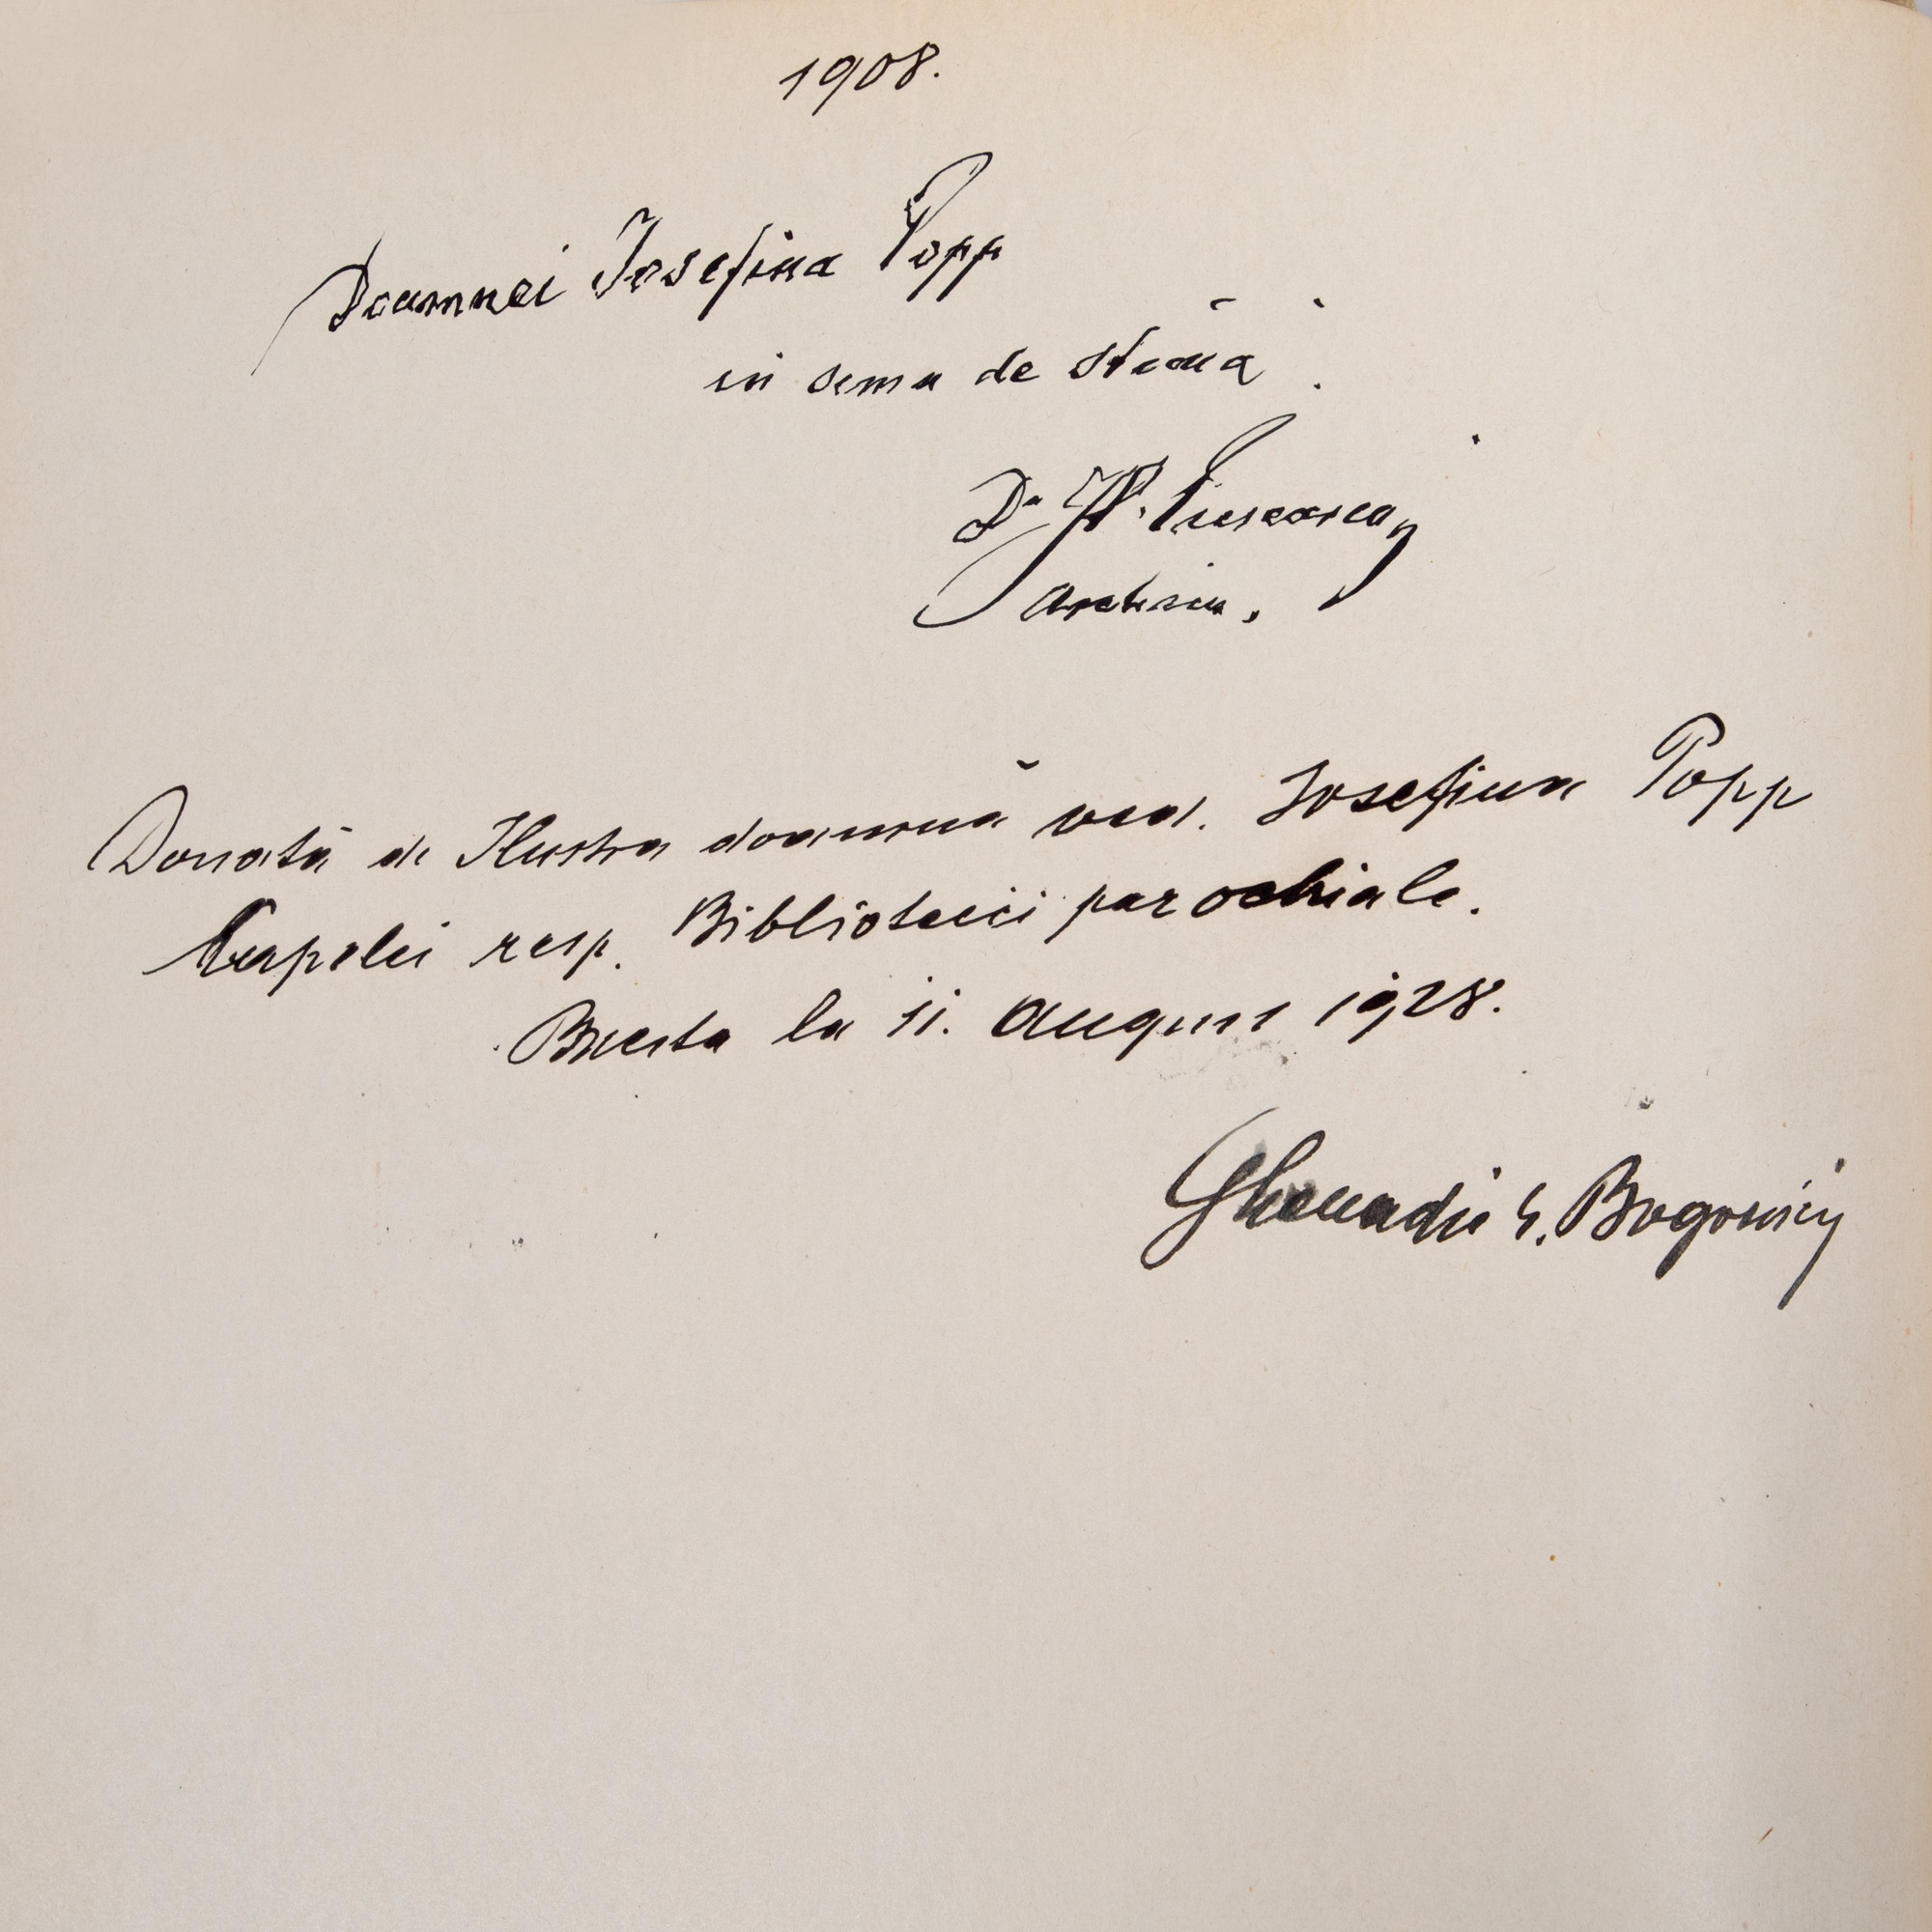 1908.
Doamnei Iosefina Popp
in semn de stimă.
Dr Il. Puscariu
Archim.
Donată de Ilustra doamnă ved. Iosefina Popp
Capelei resp. Bibliotecii parochiale.
la 11. August 1928.
Ghenadie G. Bogoeviciu